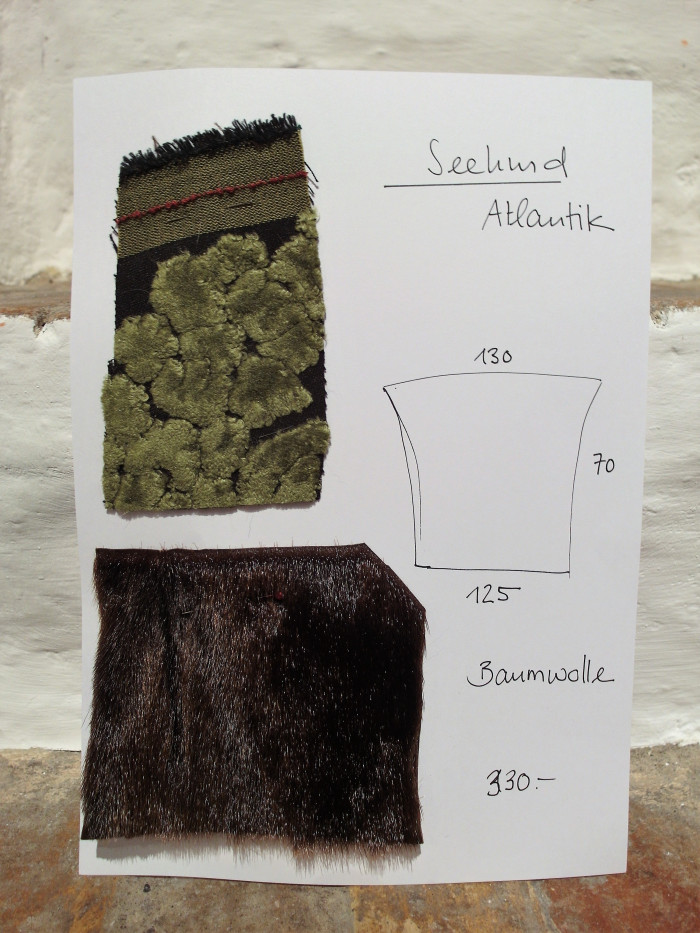 Seehund
Atlantik
130
70
125
Baumwolle
330.-